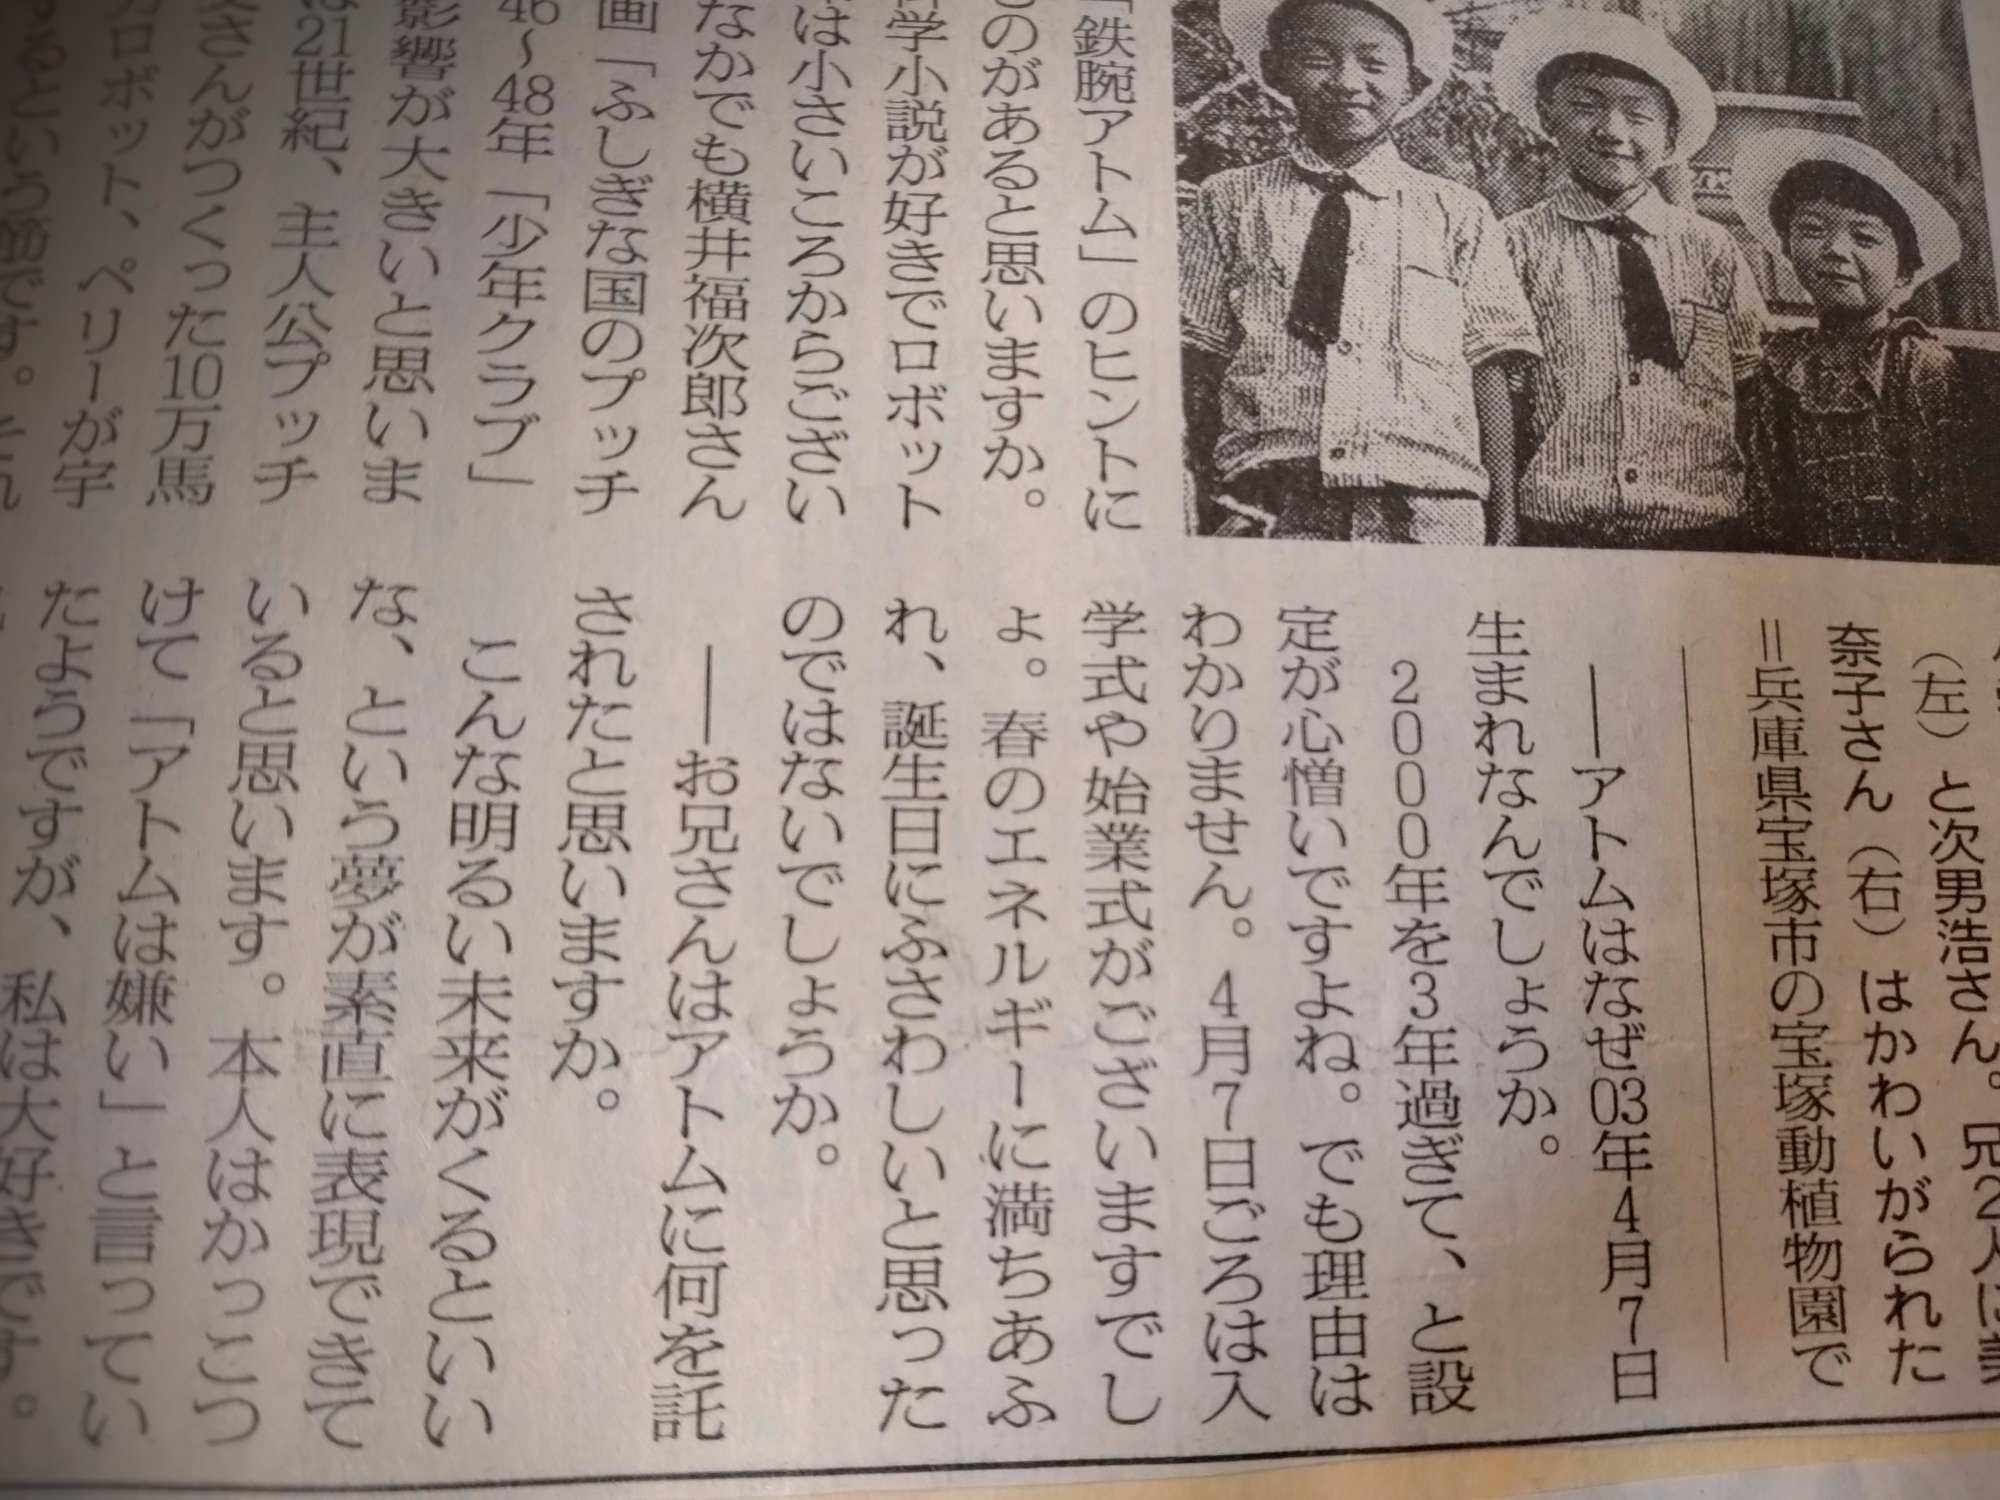 (左)と次男浩さん。兄2人に美
奈子さん(右)はかわいがられた
=兵庫県宝塚市の宝塚動植物園で
「鉄腕アトム」のヒントに
ものがあると思いますか。
科学小説が好きでロボット
は小さいころからござい
なかでも横井福次郎さん
画「ふしぎな国のプッチ
46〜48年「少年クラブ」
影響が大きいと思いま
は21世紀、主人公プッチ
父さんがつくった10万馬
ロボット、ペリーが宇
するという筋です。それ
――アトムはなぜ03年4月7日
生まれなんでしょうか。
2000年を3年過ぎて、と設
定が心憎いですよね。でも理由は
わかりません。4月7日ごろは入
学式や始業式がございますでし
ょ。春のエネルギーに満ちあふ
れ、誕生日にふさわしいと思った
のではないでしょうか。
――お兄さんはアトムに何を託
されたと思いますか。
こんな明るい未来がくるといい
な、という夢が素直に表現できて
いると思います。本人はかっこつ
けて「アトムは嫌い」と言ってい
たようですが、私は大好きです。